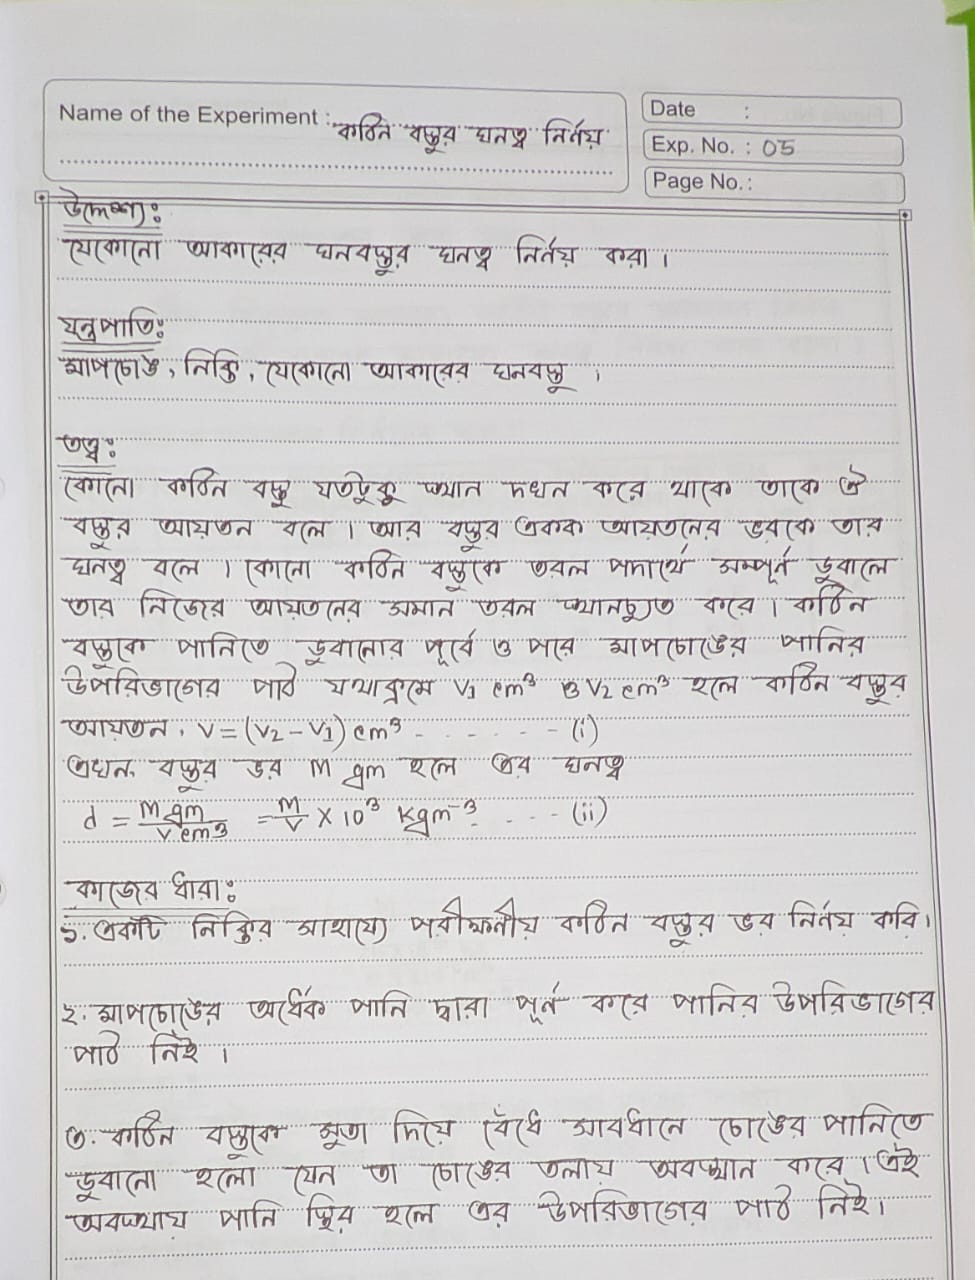 Name of the Experiment : কঠিন বস্তুর ঘনত্ব নির্ণয়
Date :
Exp. No. : 05
Page No.:
উদ্দেশ্য:
যেকোনো আকারের ঘনবস্তুর ঘনত্ব নির্ণয় করা।
যন্ত্রপাতি:
মাপচোঙ, নিক্তি, যেকোনো আকারের ঘনবস্তু ।
তত্ত্ব:
কোনো কঠিন বস্তু যতটুকু স্থান দখল করে থাকে তাকে ঐ
বস্তুর আয়তন বলে । আর বস্তুর একক আয়তনের ভরকে তার
ঘনত্ব বলে । কোনো কঠিন বস্তুকে তরল পদার্থে সম্পূর্ণ ডুবালে
তার নিজের আয়তনের সমান তরল স্থানচ্যুত করে । কঠিন
বস্তুকে পানিতে ডুবানোর পূর্বে ও পরে মাপচোঙের পানির
উপরিভাগের পাঠ যথাক্রমে V₁ cm³ ও V₂ cm³ হলে কঠিন বস্তুর
আয়তন, V = (V₂ – V₁) cm³ - - - - - - - (i)
এখন, বস্তুর ভর M gm হলে এর ঘনত্ব
d = M gm / V cm³ = M/V × 10³ Kgm⁻³ - - - - (ii)
কাজের ধারা:
১. একটি নিক্তির সাহায্যে পরীক্ষণীয় কঠিন বস্তুর ভর নির্ণয় করি।
২. মাপচোঙের অর্ধেক পানি দ্বারা পূর্ণ করে পানির উপরিভাগের
পাঠ নিই ।
৩. কঠিন বস্তুকে সুতা দিয়ে বেঁধে সাবধানে চোঙের পানিতে
ডুবানো হলো যেন তা চোঙের তলায় অবস্থান করে । এই
অবস্থায় পানি স্থির হলে এর উপরিভাগের পাঠ নিই।